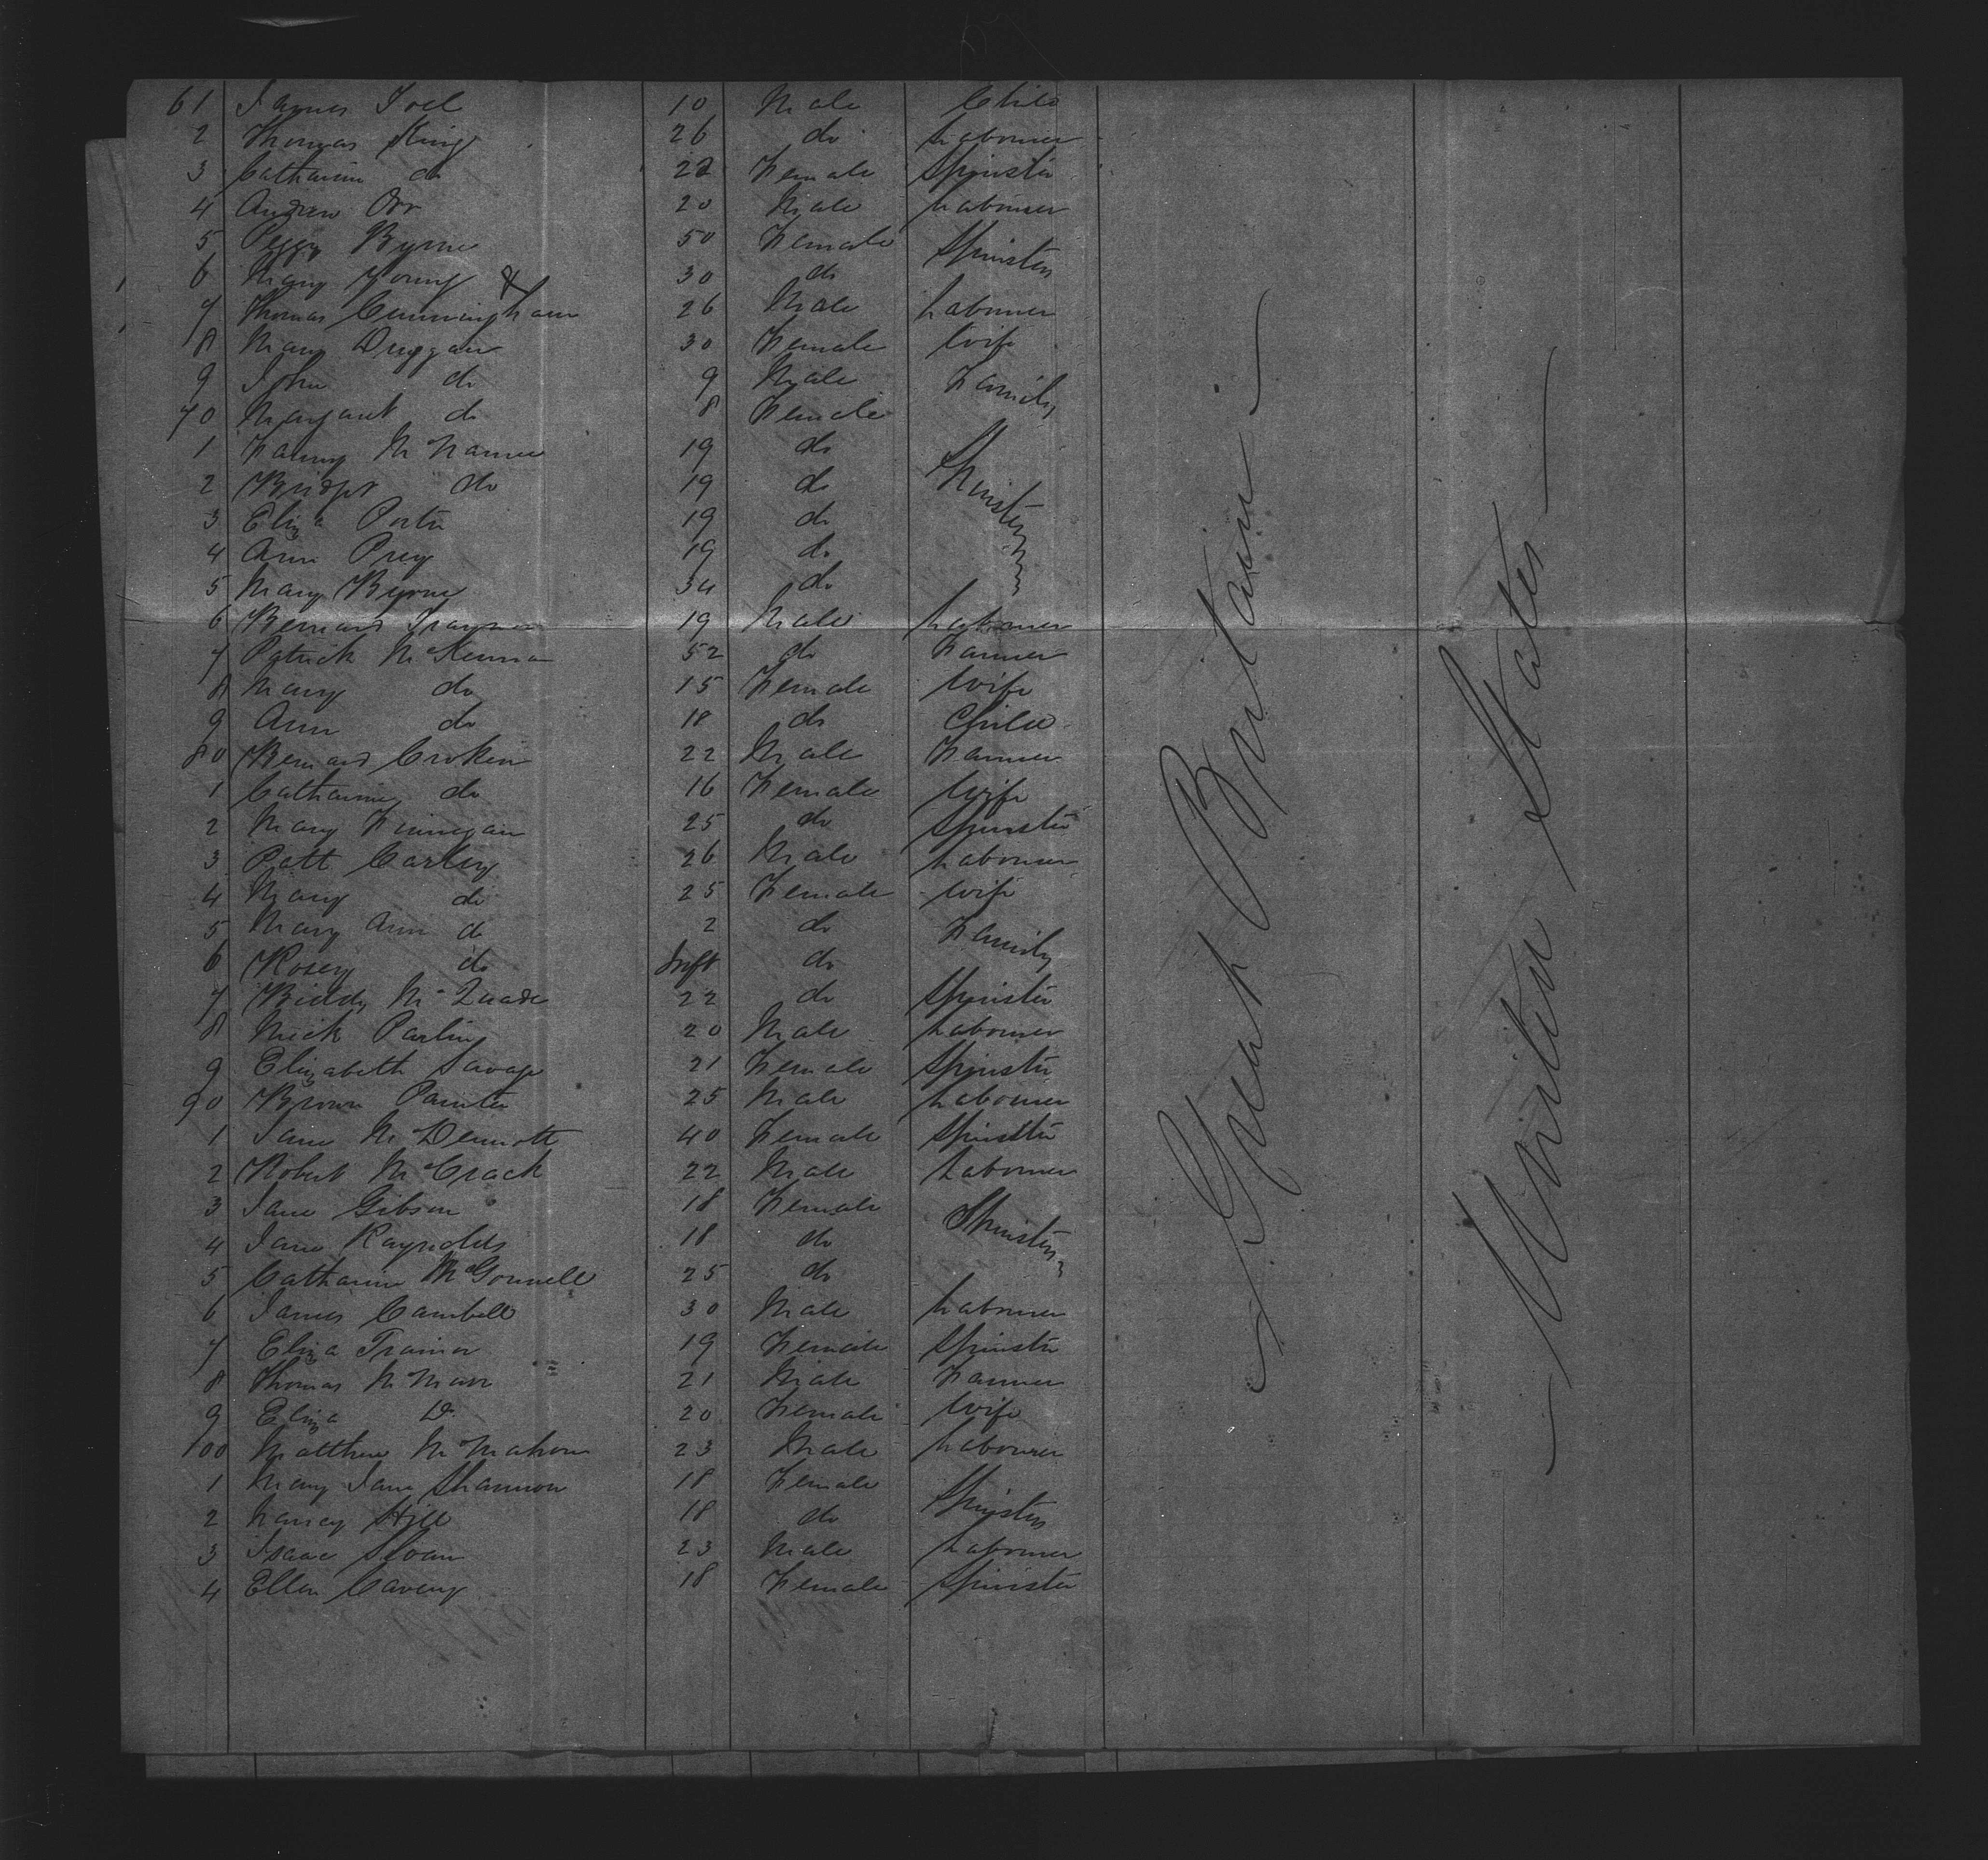 61 James Joel 10 Male Child
2 Thomas King 26 do Labourer
3 Catharine do 22 Female Spinster
4 Andrew Orr 20 Male Labourer
5 Peggy Byrne 50 Female Spinsters
6 Mary Young 30 do
7 Thomas Cunningham 26 Male Labourer
8 Mary Duggan 30 Female Wife
9 John do 9 Male Family
70 Margaret do 8 Female
1 Fanny McNamee 19 do Spinsters
2 Bridget do 19 do
3 Eliza Porter 19 do
4 Ann Prey 19 do
5 Mary Byrne 34 do
6 Bernard Traynor 19 Male Labourer
7 Patrick McKenna 52 do Farmer
8 Mary do 15 Female Wife
9 Ann do 18 do Child
80 Bernard Crokin 22 Male Farmer
1 Catharine do 16 Female Wife
2 Mary Finnegan 25 do Spinster
3 Patt Carley 26 Male Labourer
4 Mary do 25 Female Wife
5 Mary Ann do 2 do Family
6 Rosey do Inft do
7 Biddy McQuade 22 do Spinster
8 Mick Parlin 20 Male Labourer
9 Elizabeth Savage 21 Female Spinster
90 Brown Painter 25 Male Labourer
1 Jane McDermott 40 Female Spinster
2 Robert McCrack 22 Male Labourer
3 Jane Gibson 18 Female Spinsters
4 Jane Raynolds 18 do
5 Catharine McGonnell 25 do
6 James Cambell 30 Male Labourer
7 Eliza Trainor 19 Female Spinster
8 Thomas McMarr 21 Male Farmer
9 Eliza Do 20 Female Wife
100 Matthew McMahon 23 Male Labourer
1 Mary Jane Shannon 18 Female Spinsters
2 Nancy Hill 18 do
3 Isaac Sloan 23 Male Labourer
4 Ellen Caveny 18 Female Spinster
Great Britain
United States